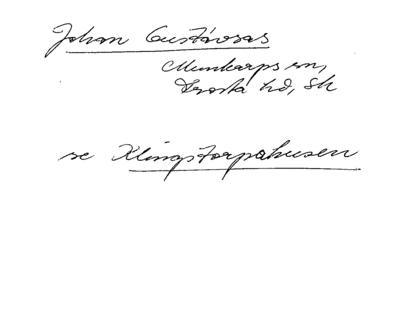 Johan Gustävsas
Munkarps sn,
Frosta hd, Sk
se Klingstorpahusen